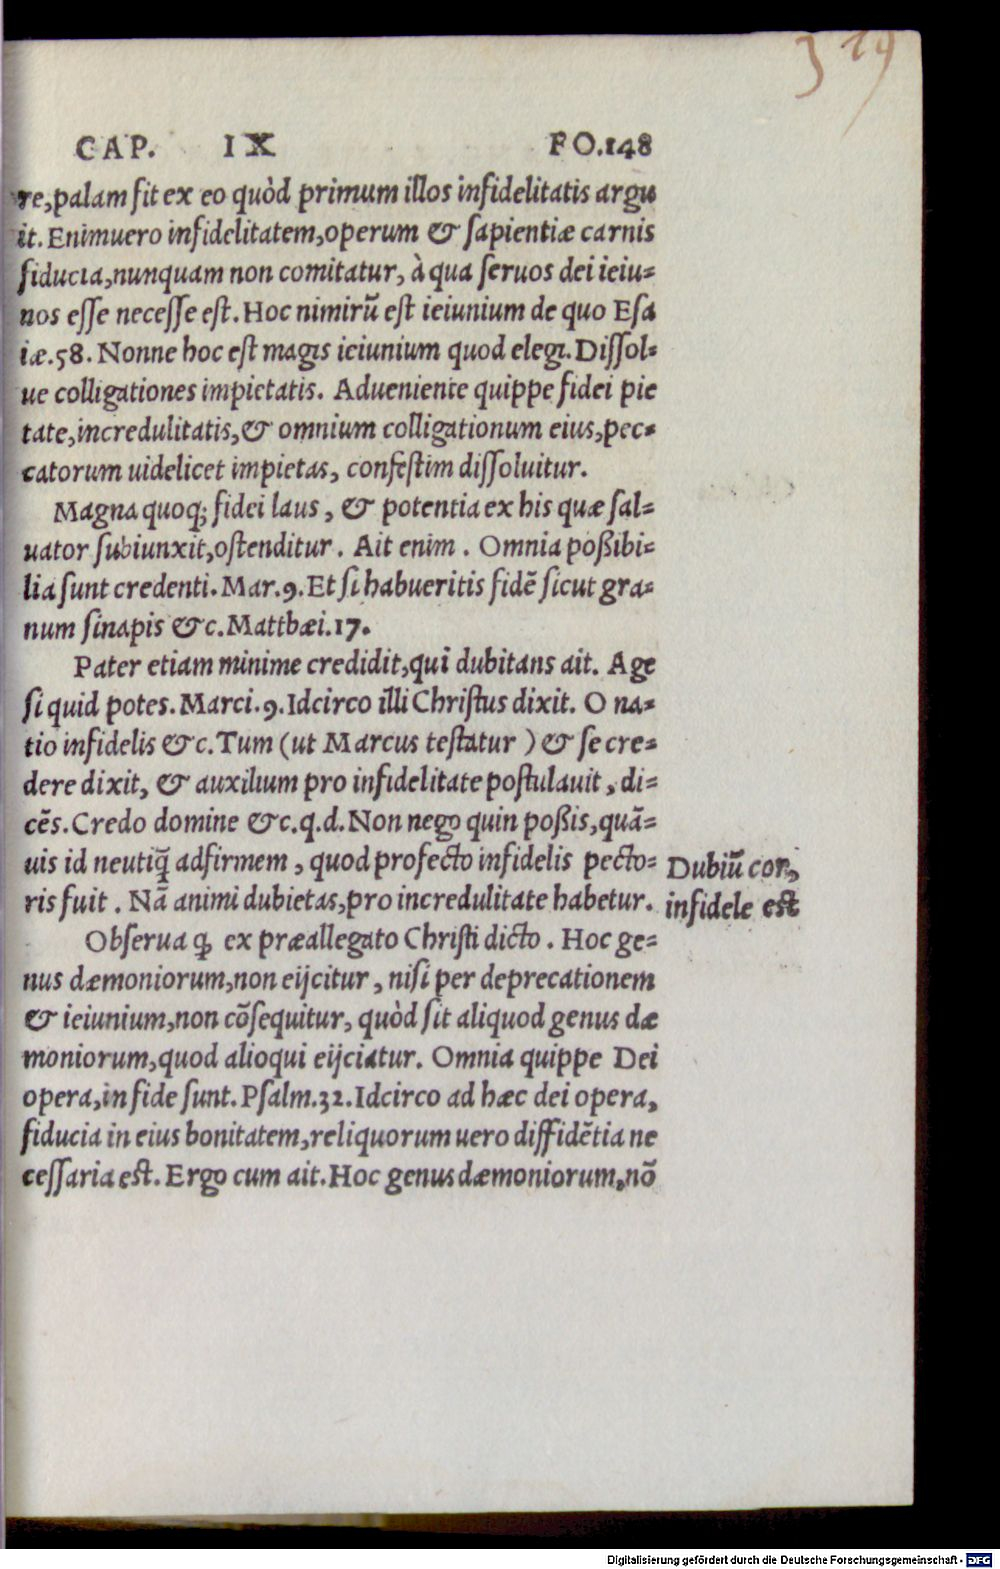 319
CAP. IX FO.148
re,palam fit ex eo quòd primum illos infidelitatis argu
it. Enimuero infidelitatem,operum & sapientiæ carnis
fiducia,nunquam non comitatur, à qua seruos dei ieiu=
nos esse necesse est. Hoc nimirũ est ieiunium de quo Esa
iæ.58. Nonne hoc est magis ieiunium quod elegi. Dissol=
ue colligationes impietatis. Adueniente quippe fidei pie
tate,incredulitatis,& omnium colligationum eius,pec=
catorum uidelicet impietas, confestim dissoluitur.
Magna quoq; fidei laus, & potentia ex his quæ sal=
uator subiunxit,ostenditur. Ait enim. Omnia poßibi=
lia sunt credenti. Mar.9. Et si habueritis fidẽ sicut gra=
num sinapis &c. Matthæi.17.
Pater etiam minime credidit,qui dubitans ait. Age
si quid potes. Marci.9. Idcirco illi Christus dixit. O na=
tio infidelis &c. Tum (ut Marcus testatur) & se cre=
dere dixit, & auxilium pro infidelitate postulauit, di=
cẽs. Credo domine &c.q.d. Non nego quin poßis,quã=
uis id neutiq̃ adfirmem, quod profecto infidelis pecto=
ris fuit. Nã animi dubietas,pro incredulitate habetur.
Dubiũ cor,
infidele est
Obserua ꝙ ex præallegato Christi dicto. Hoc ge=
nus dæmoniorum,non eijcitur, nisi per deprecationem
& ieiunium,non cõsequitur, quòd sit aliquod genus dæ
moniorum,quod alioqui eijciatur. Omnia quippe Dei
opera,in fide sunt. Psalm.32. Idcirco ad hæc dei opera,
fiducia in eius bonitatem,reliquorum uero diffidẽtia ne
cessaria est. Ergo cum ait. Hoc genus dæmoniorum,nõ
Digitalisierung gefördert durch die Deutsche Forschungsgemeinschaft - DFG